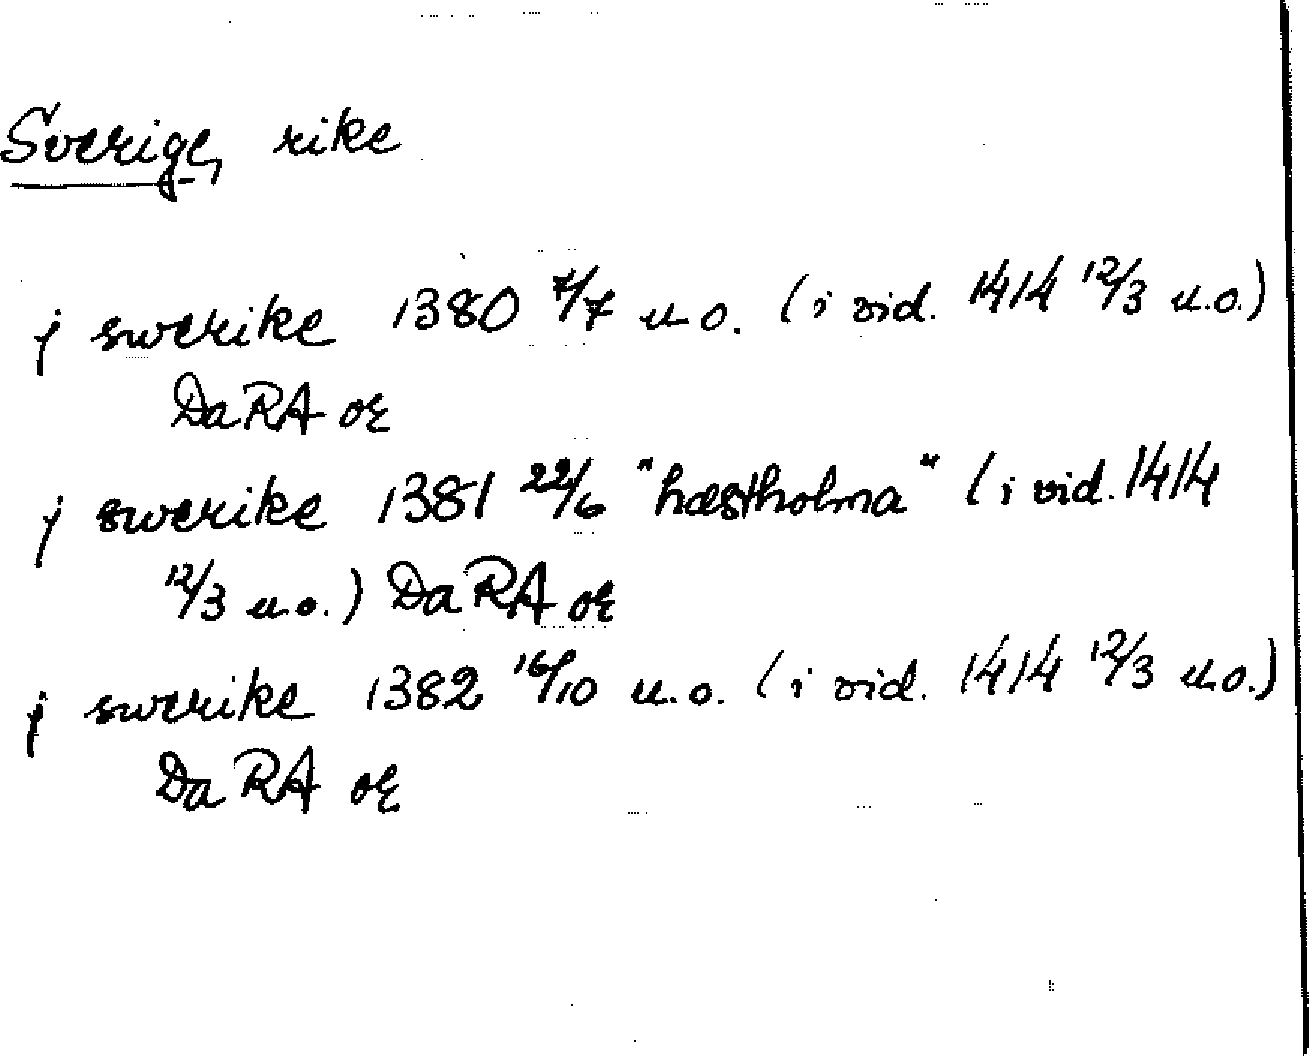 Sverige, rike
j swerike 1380 7/7 u.o. (i vid. 1414 12/3 u.o.)
DaRA or
j swerike 1381 22/6 "hæstholma" (i vid. 1414
12/3 u.o.) DaRA or
j swerike 1382 16/10 u.o. (i vid. 1414 12/3 u.o.)
DaRA or